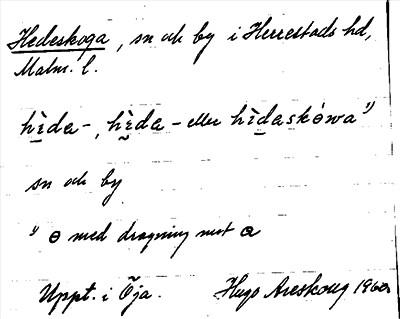 Hedeskoga, sn ock by i Herrestads hd,
Malm. l.
hìda-, hìda- eller hìdaskòwa ¹⁾
sn ock by
¹⁾ ɵ med dragning mot a
Uppt. i Öja. Hugo Areskoug 1960